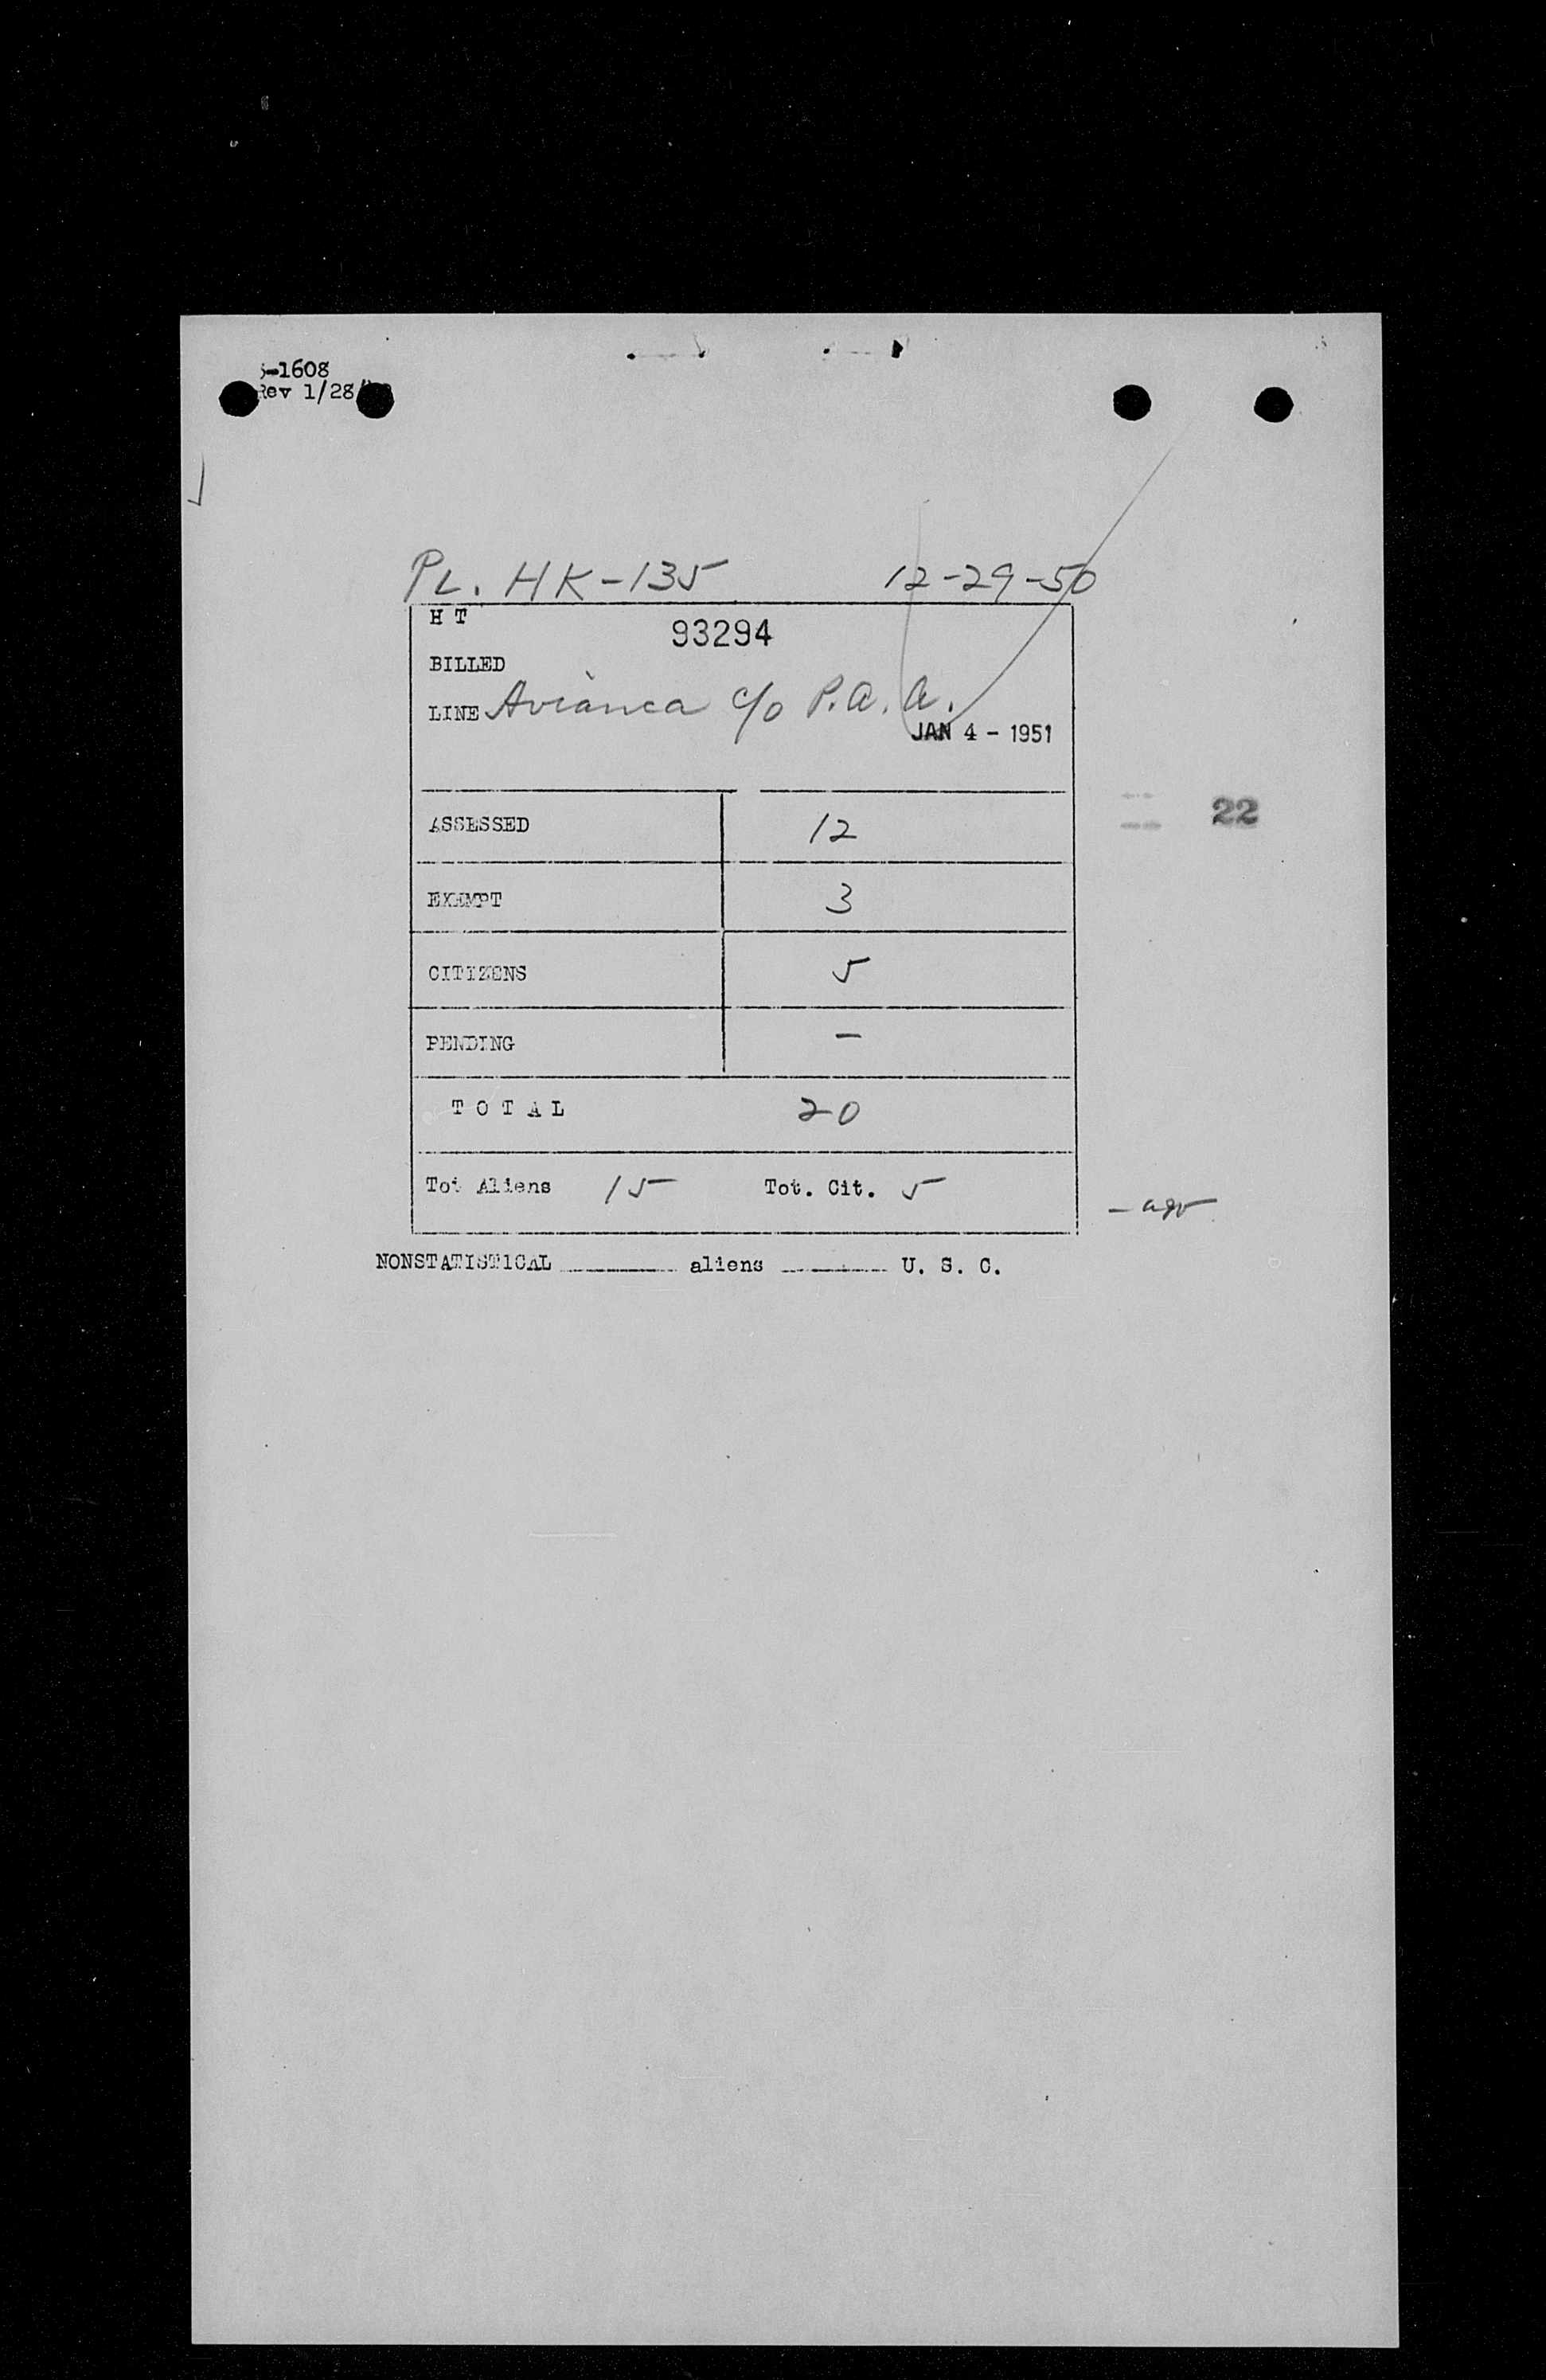 -1608
Rev 1/28/
PL. HK-135 12-29-50
H T
93294
BILLED
LINE Avianca c/o P.A.A.
JAN 4 - 1951
ASSESSED 12
22
EXEMPT 3
CITIZENS 5
PENDING -
T O T A L 20
Tot Aliens 15 Tot. Cit. 5
NONSTATISTICAL aliens U. S. C.